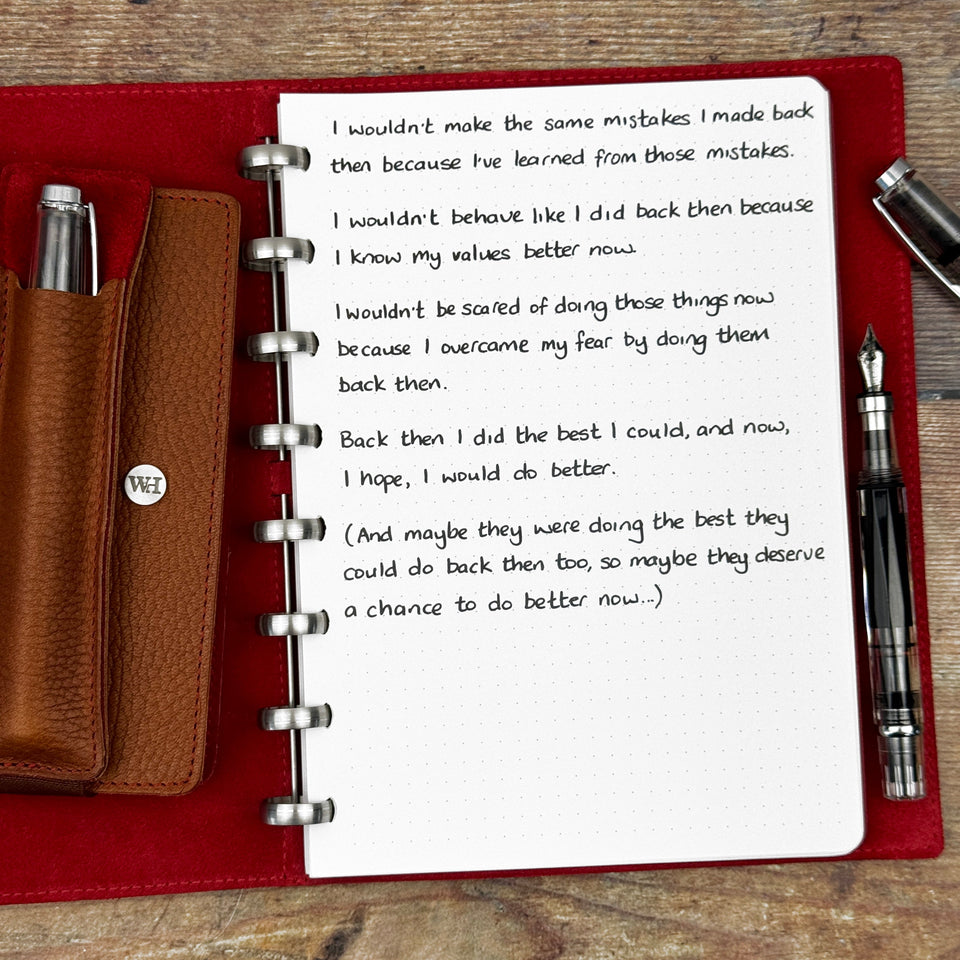 I wouldn't make the same mistakes I made back
then because I've learned from those mistakes.
I wouldn't behave like I did back then because
I know my values better now.
I wouldn't be scared of doing those things now
because I overcame my fear by doing them
back then.
Back then I did the best I could, and now,
I hope, I would do better.
(And maybe they were doing the best they
could do back then too, so maybe they deserve
a chance to do better now...)
WH